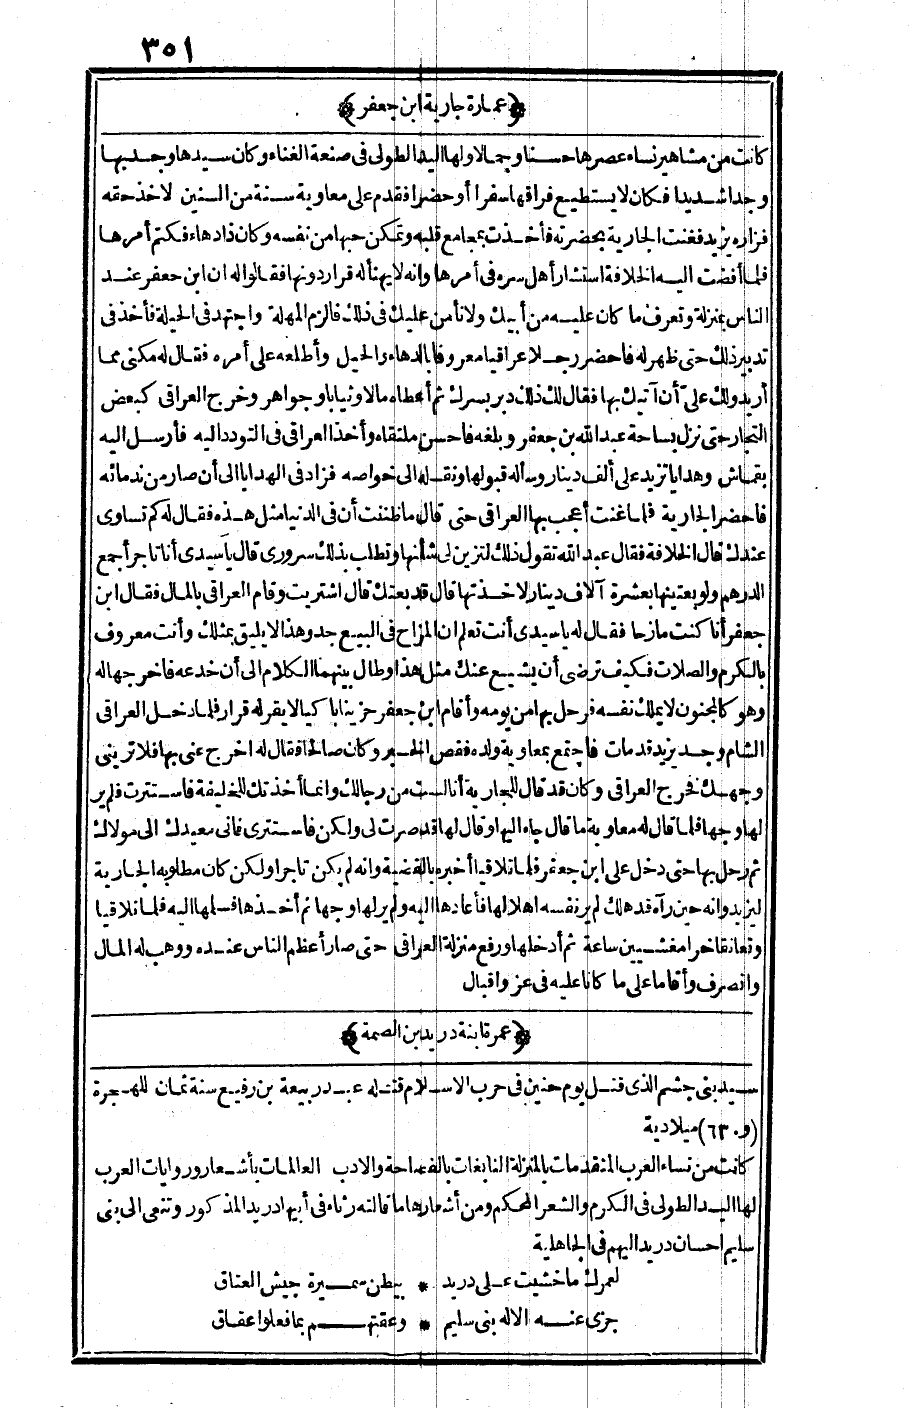 ٣٥١
﴿عمارة جارية ابن جعفر﴾
كانت من مشاهير نساء عصرها حسنا وجمالا ولها اليد الطولى فى صنعة الغناء وكان سيدها وجد بها
وجدا شديدا فكان لا يستطيع فراقها سفرا أو حضرا فقدم على معاوية سنة من السنين لاخذ حقه
فزاره يزيد فغنت الجارية بحضرته فأخذت بمجامع قلبه وتمكن حبها من نفسه وكان ذا دهاء فكتم أمرها
فلما أفضت اليه الخلافة استشار أهل سره فى أمرها وانه لا يهنأ له قرار دونها فقالوا له ان ابن جعفر عند
الناس بمنزلة وتعرف ما كان عليه من أبيك ولا نأمن عليك فى ذلك فالزم المهلة واجتهد فى الحيلة فأخذ فى
تدبير ذلك حتى ظهر له فاحضر رجلا عراقيا معروفا بالدهاء والحيل وأطلعه على أمره فقال له مكنى مما
أريد ولك على أن آتيك بها فقال لك ذلك دبر بسرك ثم أعطاه مالا وثيابا وجواهر وخرج العراقى كبعض
التجار حتى نزل بساحة عبد الله بن جعفر وبلغه فاحسن ملتقاه وأخذ العراقى فى التودد اليه فأرسل اليه
بقماش وهدايا تزيد على ألف دينار وسأله قبولها ونقله الى خواصه فزاد فى الهدايا الى أن صار من ندمائه
فاحضر الجارية فلما غنت أعجب بها العراقى حتى قال ما ظننت أن فى الدنيا مثل هذه فقال له كم تساوى
عندك قال الخلافة فقال عبد الله تقول ذلك لتزين لى شأنها وتطلب بذلك سرورى قال يا سيدى أنا تاجر أجمع
الدرهم ولو بعتنيها بعشرة آلاف دينار لاخذتها قال قد بعتك قال اشتريت وقام العراقى بالمال فقال ابن
جعفر أنا كنت مازحا فقال له يا سيدى أنت تعلم ان المزاح فى البيع جد وهذا لا يليق بمثلك وأنت معروف
بالكرم والصلات فكيف ترضى أن يشيع عنك مثل هذا وطال بينهما الكلام الى أن خدعه فاخرجها له
وهو كالمجنون لا يملك نفسه فرحل بها من يومه وأقام ابن جعفر حزينا باكيا لا يقر له قرار فلما دخل العراقى
الشام وجد يزيد قد مات فاجتمع بمعاوية ولده فقص الخبر وكان صالحا فقال له اخرج عنى بها فلا ترينى
وجهك فخرج العراقى وكان قد قال للجارية أنا لست من رجالك وانما أخذتك للخليفة فاستترت فلم ير
لها وجها فلما قال له معاوية ما قال جاء اليها وقال لها قد صرت لى ولكن فاستترى فانى معيدك الى مولاك
ثم رحل بها حتى دخل على ابن جعفر فلما تلاقيا أخبره بالقضية وانه لم يكن تاجرا ولكن كان مطلوبه الجارية
ليزيد وانه حين رآه قد هلك لم ير نفسه اهلا لها فأعادها اليه ولم ير لها وجها ثم أخذها فسلمها اليه فلما تلاقيا
وتعانقا خرا مغشيين ساعة ثم أدخلها ورفع منزلة العراقى حتى صار أعظم الناس عنده ووهب له المال
وانصرف وأقاما على ما كانا عليه فى عز واقبال
﴿عمرة ابنة دريد ابن الصمة﴾
سيد بنى جشم الذى قتل يوم حنين فى حرب الاسلام قتله عبد ربيعة بن رفيع سنة ثمان للهجرة
(و٦٣٠) ميلادية
كانت من نساء العرب المتقدمات بالمنزلة النابغات بالفصاحة والادب العالمات بأشعار وروايات العرب
لها اليد الطولى فى الكرم والشعر المحكم ومن أشعارها ما قالته رثاء فى أبيها دريد المذكور وتنعى الى بنى
سليم احسان دريد اليهم فى الجاهلية
لعمرك ما خشيت على دريد * ببطن سميرة جيش العناق
جزى عنه الاله بنى سليم * وعقتهم بما فعلوا عقاق